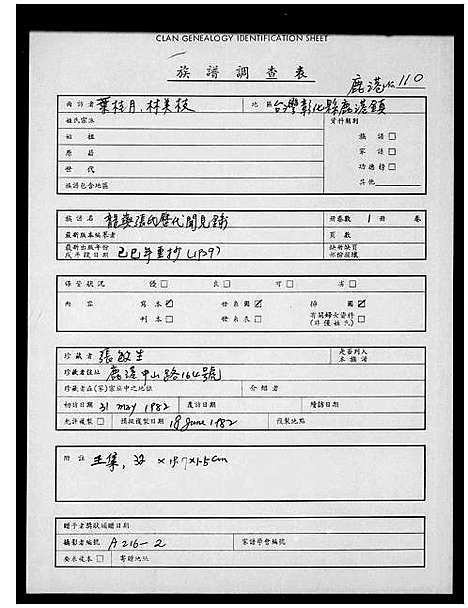 CLAN GENEALOGY IDENTIFICATION SHEET
族譜調查表
鹿港 No 110
面訪者 葉桂月、林美枝 地區 台灣彰化縣鹿港鎮
姓氏宗派 資料類別
始祖 族譜 □
原籍 家譜 □
世代 功德榜 □
族譜包含地區 其他
族譜名 張氏歷代聞見 册卷數 1 册 卷
最新版本編纂者 頁數
最新出版年份或手錄日期 己巳年重抄 (1929) 缺册缺頁部份損壞
保管狀況 優 □ 良 □ 可 □ 劣 □
內容 寫本 ☑ 世系圖 ☑ 揷圖 ☑
刊本 □ 世系表 □ 有關婦女資料(非僅姓氏) □
珍藏者 張敏生 是否列入本族譜
珍藏者住址 鹿港中山路164號
珍藏者在(家)宗族中之地位 介紹者
初訪日期 31 may 1982 覆訪日期 續訪日期
允許複製 □ 預擬複製日期 18 June 1982 複製地點
附註 全集, × 19.7×1.5 cm
贈予者獎狀頒贈日期
攝影者編號 A 216-2 家譜學會編號
要求複本 □ 寄贈地址